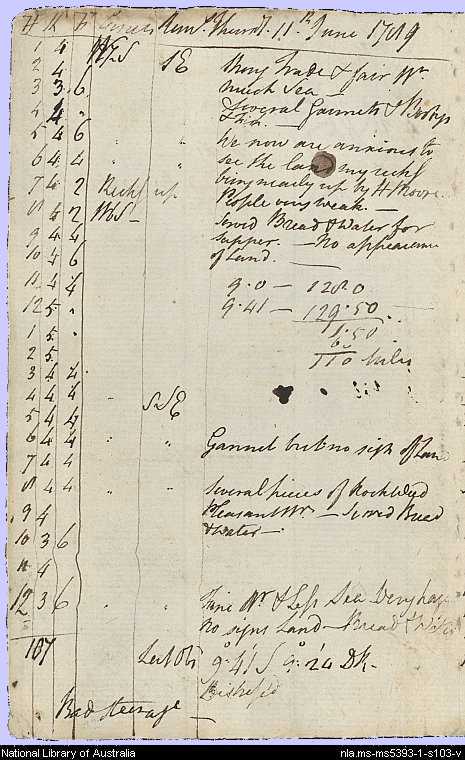 H K F Courses Remks. Thursd. 11th June 1789
1 4 WbS SE Strong Trade & fair Wr.
2 4 much Sea —
3 3 6 Several Gannets & Boobys
4 4 " & Fish. —
5 4 6 " " We now are anxious to
6 4 4 " " see the land my reckg
7 4 2 Reckg up being nearly up by H Moore.
8 4 2 WbS — People very weak. —
9 4 4 Served Bread & Water for
10 4 6 supper. — No appearance
of Land. —
11 4 4 9.0 — 128.0
12 5 " 9.41 — 129.50
1 5 " 1.50
2 5 60
3 4 4 110 Miles
4 4 4 "
5 4 4 SSE
6 4 4 " " Gannet but no sign of Land
7 4 4
8 4 4 " " Several pieces of Rock Weed
9 4 Pleasant Wr. — Served Bread
10 3 6 & Water —
11 4
12 3 6 " " Fine Wr. & Less Sea
No signs Land — Bread & Water
107 Lat Obs 9°.41' S
Bad steerage —
National Library of Australia
nla.ms-ms5393-1-s103-v